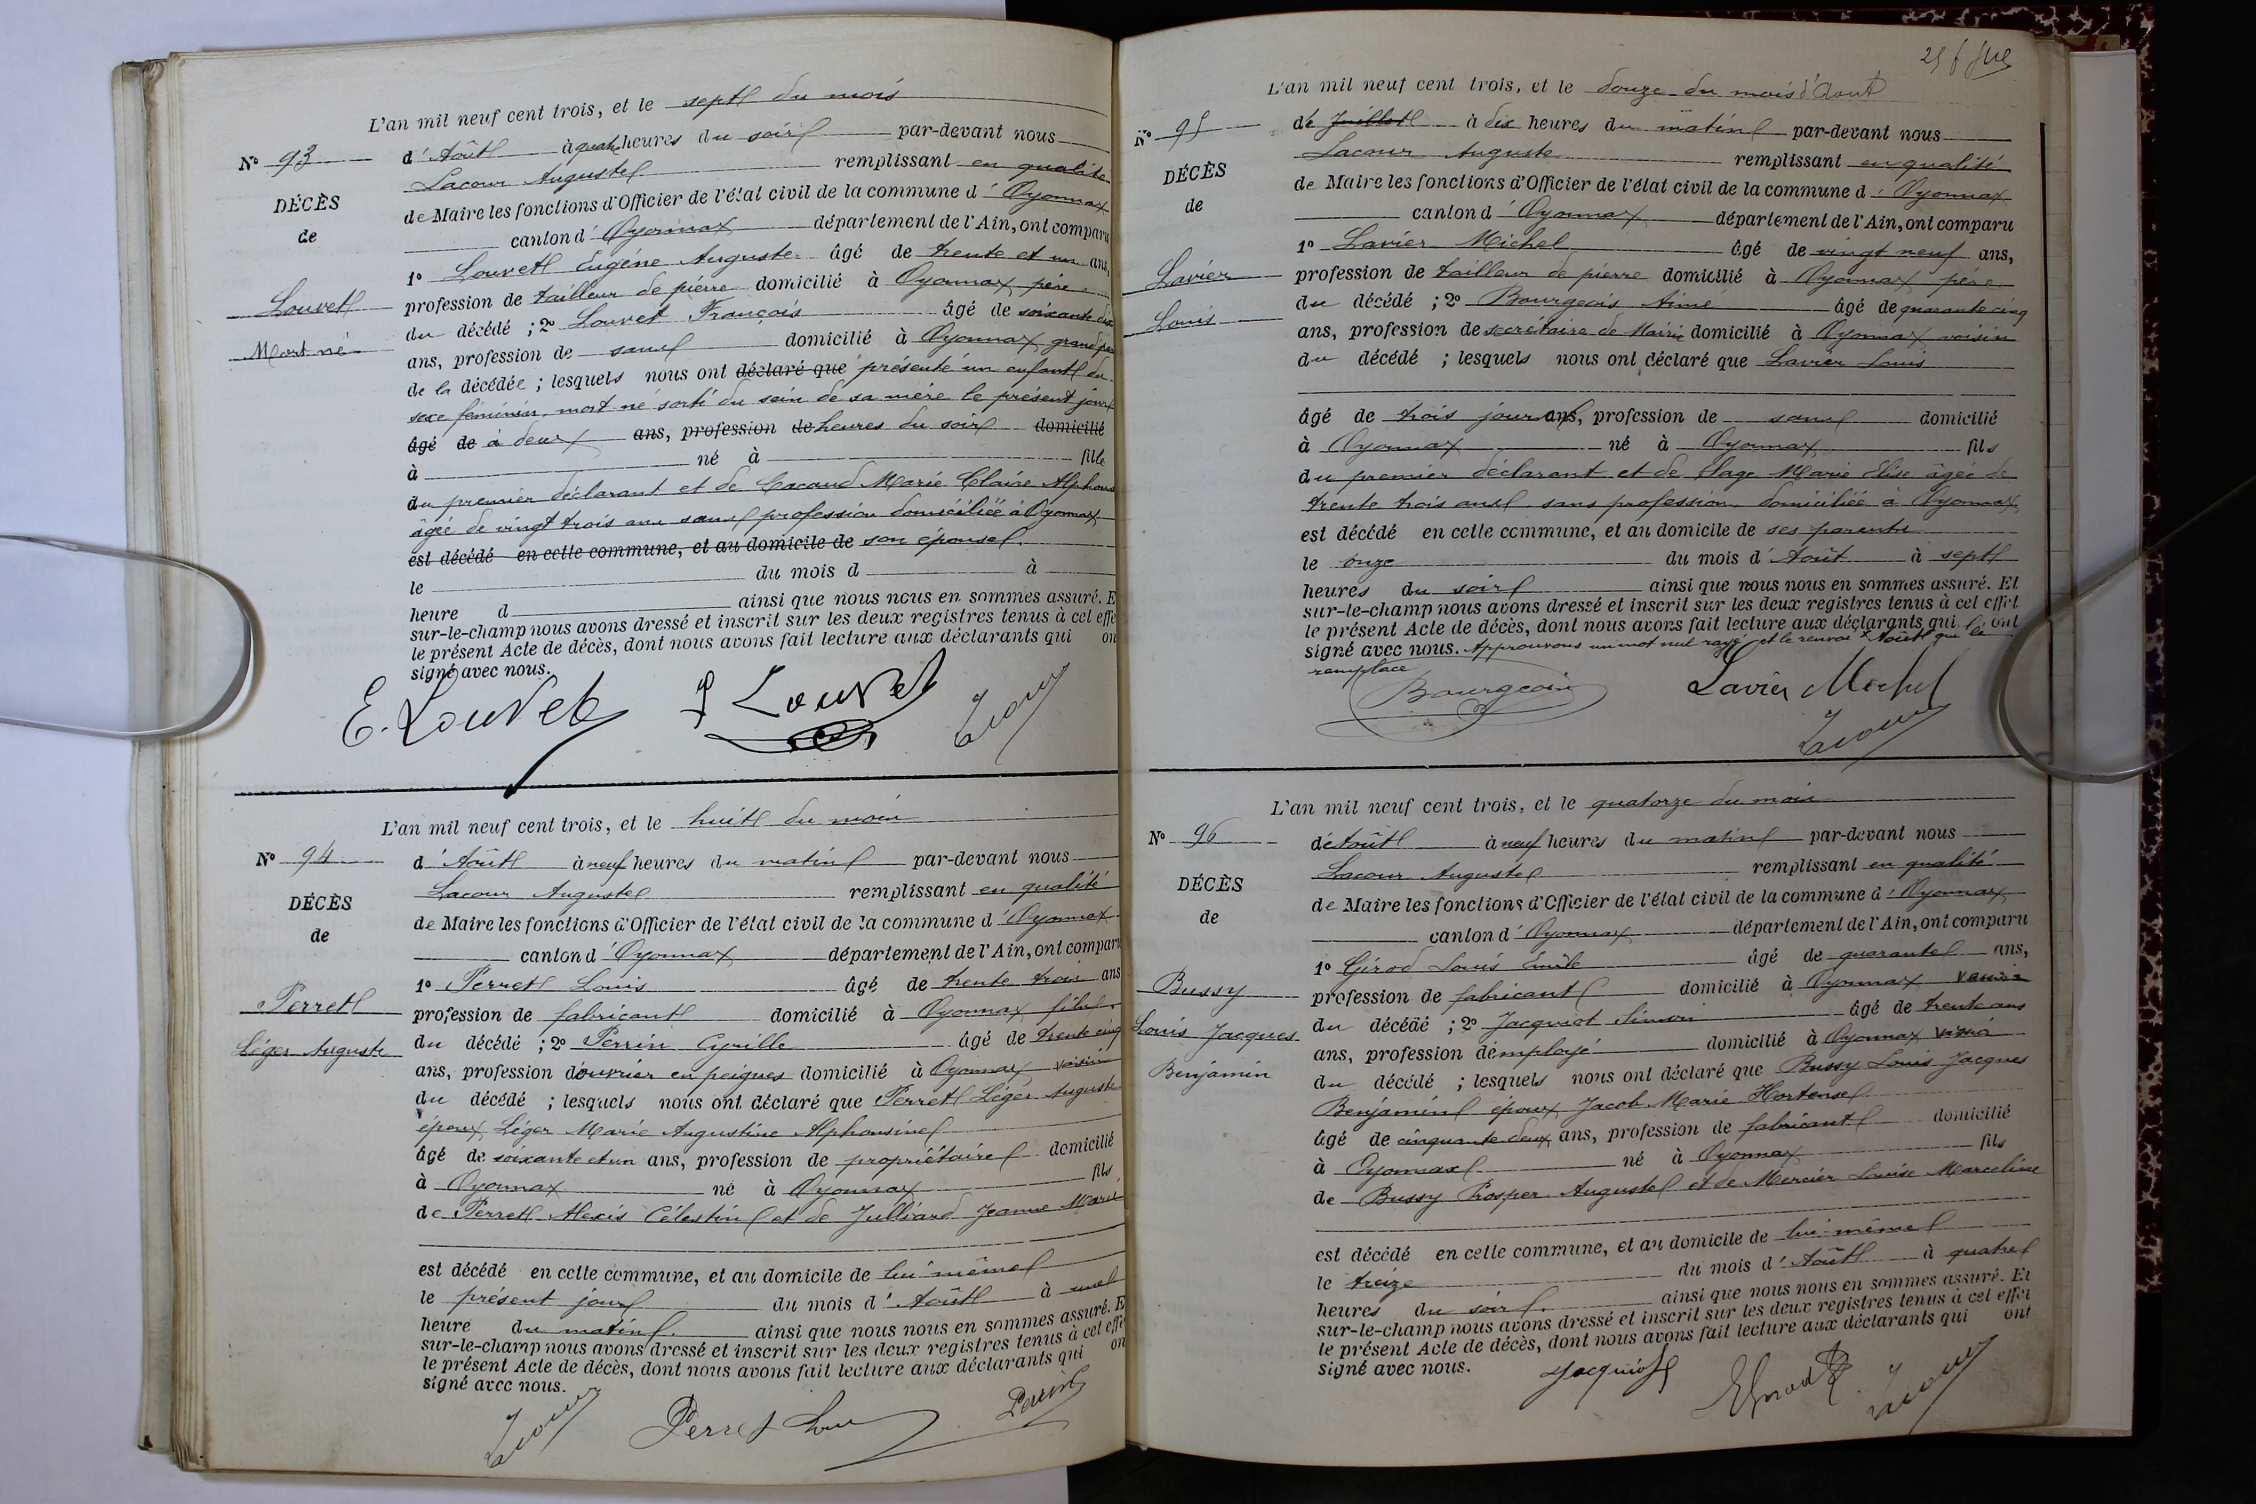 L'an mil neuf cent trois, et le sept du mois
N° 93
d'Août à quatre heures du soir par-devant nous
DÉCÈS
Lacour Auguste remplissant en qualité
de
de Maire les fonctions d'Officier de l'état civil de la commune d'Oyonnax
canton d'Oyonnax département de l'Ain, ont comparu
1° Louvet Eugène Auguste âgé de trente et un ans,
Louvet
profession de tailleur de pierre domicilié à Oyonnax, père
Mort né
du décédé ; 2° Louvet François âgé de soixante dix
ans, profession de sans domicilié à Oyonnax, grand père
de la décédée ; lesquels nous ont déclaré que présenté un enfant du
sexe féminin, mort né sorti du sein de sa mère le présent jour
âgé de à deux ans, profession de heures du soir domicilié
à né à fille
du premier déclarant et de Cacaud Marie Claire Alphons
âgée de vingt trois ans sans profession domiciliée à Oyonnax
est décédé en cette commune, et au domicile de son épouse
le du mois d à
heure d ainsi que nous nous en sommes assuré. E
sur-le-champ nous avons dressé et inscrit sur les deux registres tenus à cet effe
le présent Acte de décès, dont nous avons fait lecture aux déclarants qui on
signé avec nous.
E. Louvet F Louvet Lacour
L'an mil neuf cent trois, et le huit du mois
N° 94
d'Août à neuf heures du matin par-devant nous
DÉCÈS
Lacour Auguste remplissant en qualité
de
de Maire les fonctions d'Officier de l'état civil de la commune d'Oyonnax
canton d'Oyonnax département de l'Ain, ont comparu
1° Perret Louis âgé de trente trois ans
Perret
profession de fabricant domicilié à Oyonnax fils
Léger Auguste
du décédé ; 2° Perrin Cyrille âgé de trente cinq
ans, profession d'ouvrier en peignes domicilié à Oyonnax voisin
du décédé ; lesquels nous ont déclaré que Perret Léger Auguste
époux Léger Marie Augustine Alphonsine
âgé de soixante et un ans, profession de propriétaire domicilié
à Oyonnax né à Oyonnax fils
de Perret Alexis Célestin et de Julliard Jeanne Marie
est décédé en cette commune, et au domicile de lui même
le présent jour du mois d'Août à une
heure du matin. ainsi que nous nous en sommes assuré. E
sur-le-champ nous avons dressé et inscrit sur les deux registres tenus à cet effe
le présent Acte de décès, dont nous avons fait lecture aux déclarants qui on
signé avec nous.
Lacour Perret Louis Perrin
L'an mil neuf cent trois, et le douze du mois d'Aout
N° 95
de Juillet à dix heures du matin par-devant nous
DÉCÈS
Lacour Auguste remplissant en qualité
de
de Maire les fonctions d'Officier de l'état civil de la commune d'Oyonnax
canton d'Oyonnax département de l'Ain, ont comparu
1° Lavier Michel âgé de vingt neuf ans,
Lavier
profession de tailleur de pierre domicilié à Oyonnax père
Louis
du décédé ; 2° Bourgeois Aimé âgé de quarante cinq
ans, profession de secrétaire de Mairie domicilié à Oyonnax voisin
du décédé ; lesquels nous ont déclaré que Lavier Louis
âgé de trois jours ans, profession de sans domicilié
à Oyonnax né à Oyonnax fils
du premier déclarant et de Marie Elise âgée de
trente trois ans sans profession domiciliée à Oyonnax
est décédé en cette commune, et au domicile de ses parents
le onze du mois d'Août à sept
heures du soir ainsi que nous nous en sommes assuré. Et
sur-le-champ nous avons dressé et inscrit sur les deux registres tenus à cet effet
le présent Acte de décès, dont nous avons fait lecture aux déclarants qui ont
signé avec nous. Approuvons un mot nul rayé et le renvoi Août qui le
remplace
Bourgeois Lavier Michel
Lacour
L'an mil neuf cent trois, et le quatorze du mois
N° 96
d'Août à neuf heures du matin par-devant nous
DÉCÈS
Lacour Auguste remplissant en qualité
de
de Maire les fonctions d'Officier de l'état civil de la commune d'Oyonnax
canton d'Oyonnax département de l'Ain, ont comparu
1° Girod Louis Emile âgé de quarante ans,
Bussy
profession de fabricant domicilié à Oyonnax voisin
Louis Jacques
du décédé ; 2° Jacquiot Simon âgé de trente ans
Benjamin
ans, profession d'employé domicilié à Oyonnax voisin
du décédé ; lesquels nous ont déclaré que Bussy Louis Jacques
Benjamin époux Jacob Marie Hortense
âgé de cinquante deux ans, profession de fabricant domicilié
à Oyonnax né à Oyonnax fils
de Bussy Prosper Auguste et de Mercier Louise Marceline
est décédé en cette commune, et au domicile de lui même
le treize du mois d'Août à quatre
heures du soir. ainsi que nous nous en sommes assuré. Et
sur-le-champ nous avons dressé et inscrit sur les deux registres tenus à cet effet
le présent Acte de décès, dont nous avons fait lecture aux déclarants qui ont
signé avec nous.
Jacquiot EGirod Lacour